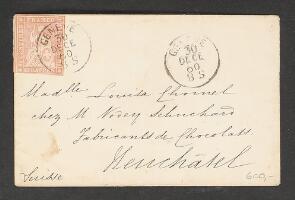 FRANCO
GENÈVE
30
DECE
60
8 S
GENÈVE
30
DECE
60
8 S
Madlle Louisa Chomel
chez M Nodey Schuchard
Fabricants de Chocolats
Neuchâtel
Suisse
600,-